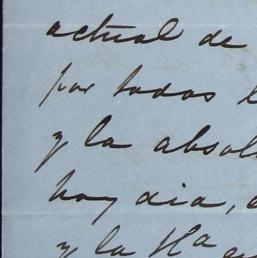 actual de
por todos
y la absol
hoy dia,
y la Ha